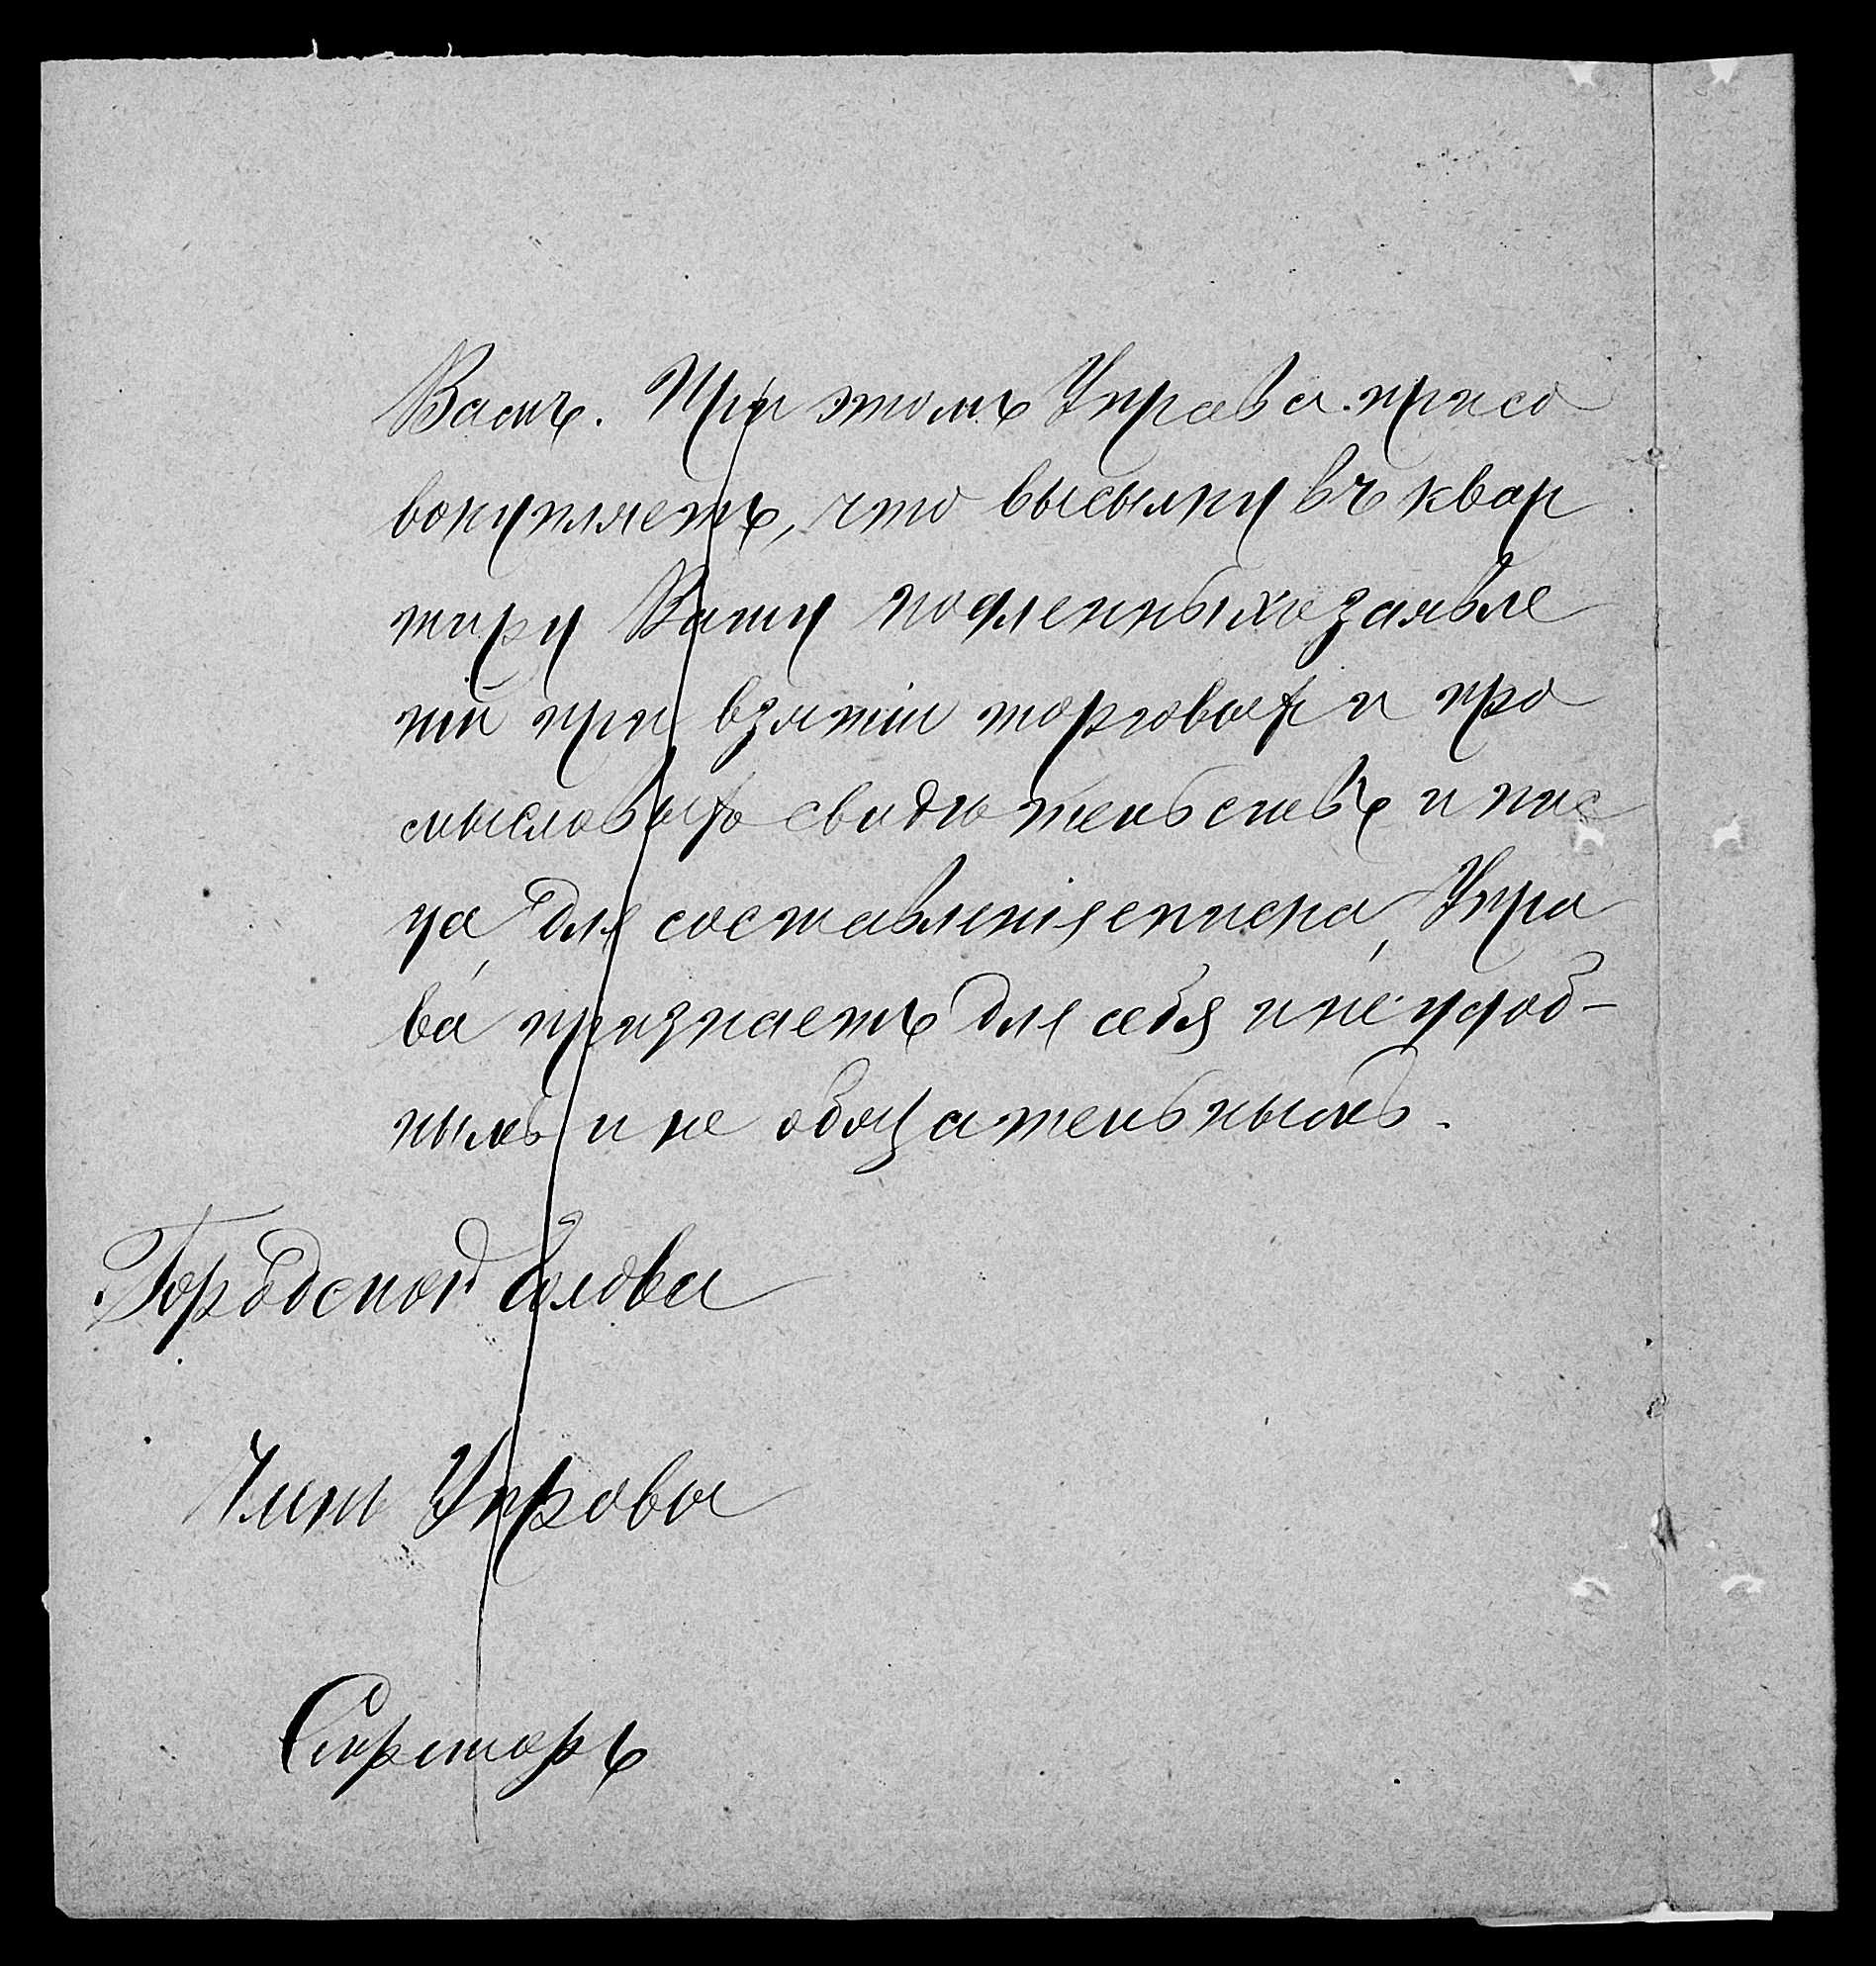 Вамъ. При этомъ Управа присо
вокупляетъ, что высылку въ квар
тиру Вашу подленныхъ заявле
ній при взятіи торговых и про
мысловыхъ свидѣтельствъ и пис
ца для составленія списка, Упра
ва признаетъ для себя и не удоб-
нымъ и не обязательнымъ.
Городской Голова
Членъ Управы
Секретарь